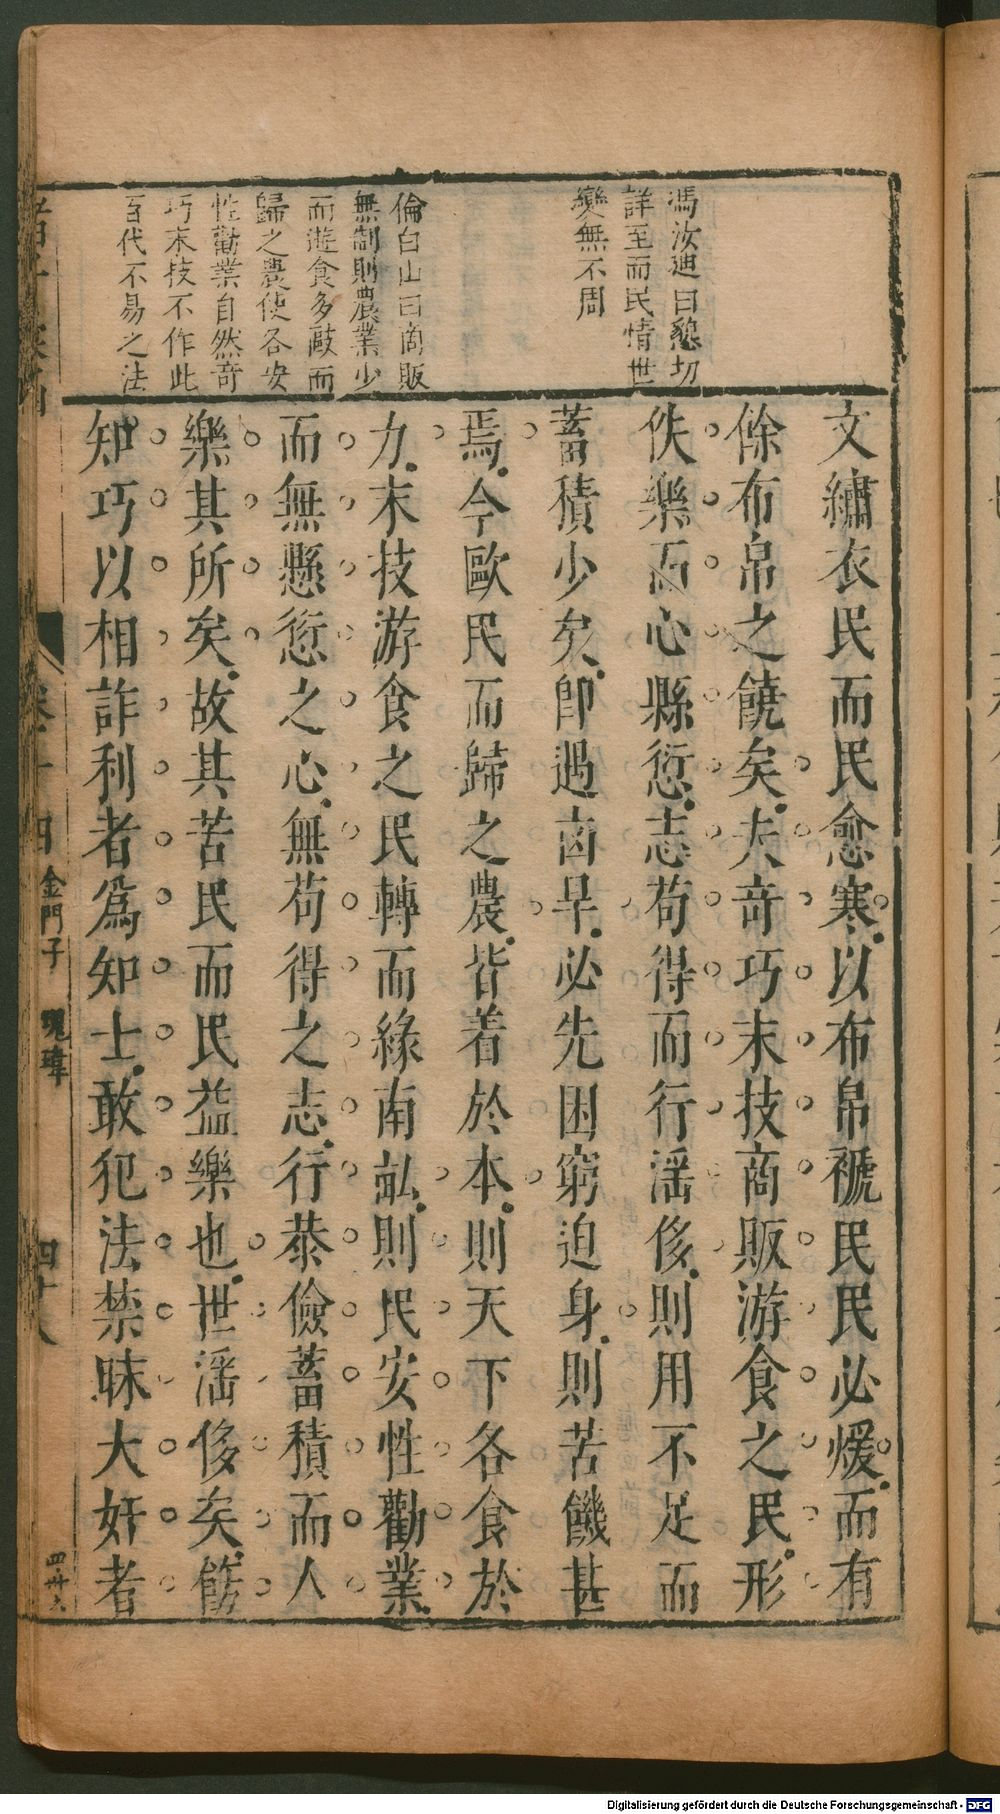 馮汝迪曰懇切
詳至而民情世
變無不周
倫白山曰商販
無制則農業少
而遊食多敺而
歸之農使各安
性勸業自然奇
巧末技不作此
百代不易之法
文繡衣民而民愈寒以布帛褫民民必煖而有
餘布帛之饒矣夫竒巧末技商販游食之民形
佚樂而心縣愆志苟得而行滛侈則用不足而
蓄積少矣卽遇凶旱必先困窮迫身則苦饑甚
焉今歐民而歸之農皆着於本則天下各食於
力末技游食之民轉而緣南畝則民安性勸業
而無懸愆之心無苟得之志行恭儉蓄積而人
樂其所矣故其苦民而民益樂也世滛侈矣餝
知巧以相詐利者爲知士敢犯法禁昧大奸者
卷十四 金門子
四十八
Digitalisierung gefördert durch die Deutsche Forschungsgemeinschaft - DFG